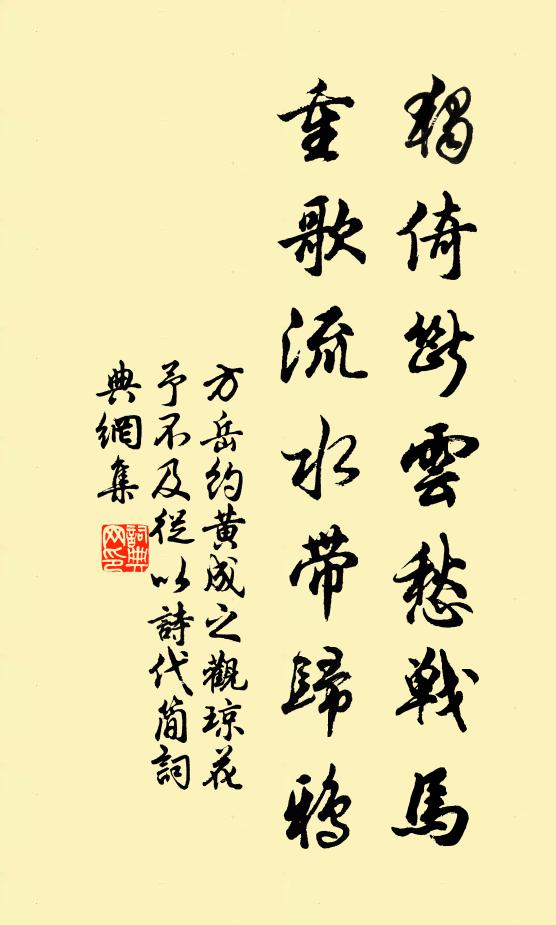 獨倚斷雲愁戰馬
重歌流水帶歸鴉
方岳約黃成之觀琼花
予不及從以詩代簡詞
典網集
詞典
网印